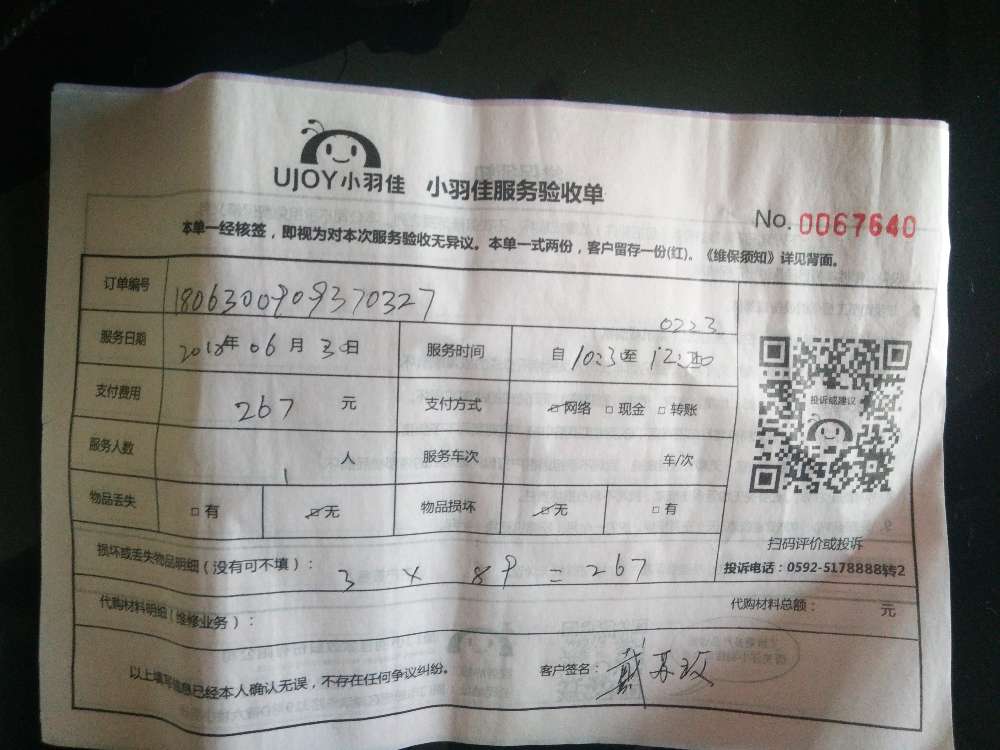 UJOY小羽佳 小羽佳服务验收单
No. 0067640
本单一经核签，即视为对本次服务验收无异议。本单一式两份，客户留存一份(红)。《维保须知》详见背面。
订单编号 180630090937 0327
0223
服务日期 2018年 06 月 30日 服务时间 自 10:3 至 12:30
支付费用 267 元 支付方式 ☑网络 □现金 □转账
投诉或建议
服务人数 1 人 服务车次 车/次
物品丢失 □有 ☑无 物品损坏 ☑无 □有
扫码评价或投诉
损坏或丢失物品明细（没有可不填）： 3 × 89 = 267
投诉电话：0592-5178888转2
代购材料明细（维修业务）： 代购材料总额： 元
以上填写信息已经本人确认无误，不存在任何争议纠纷。 客户签名： 戴